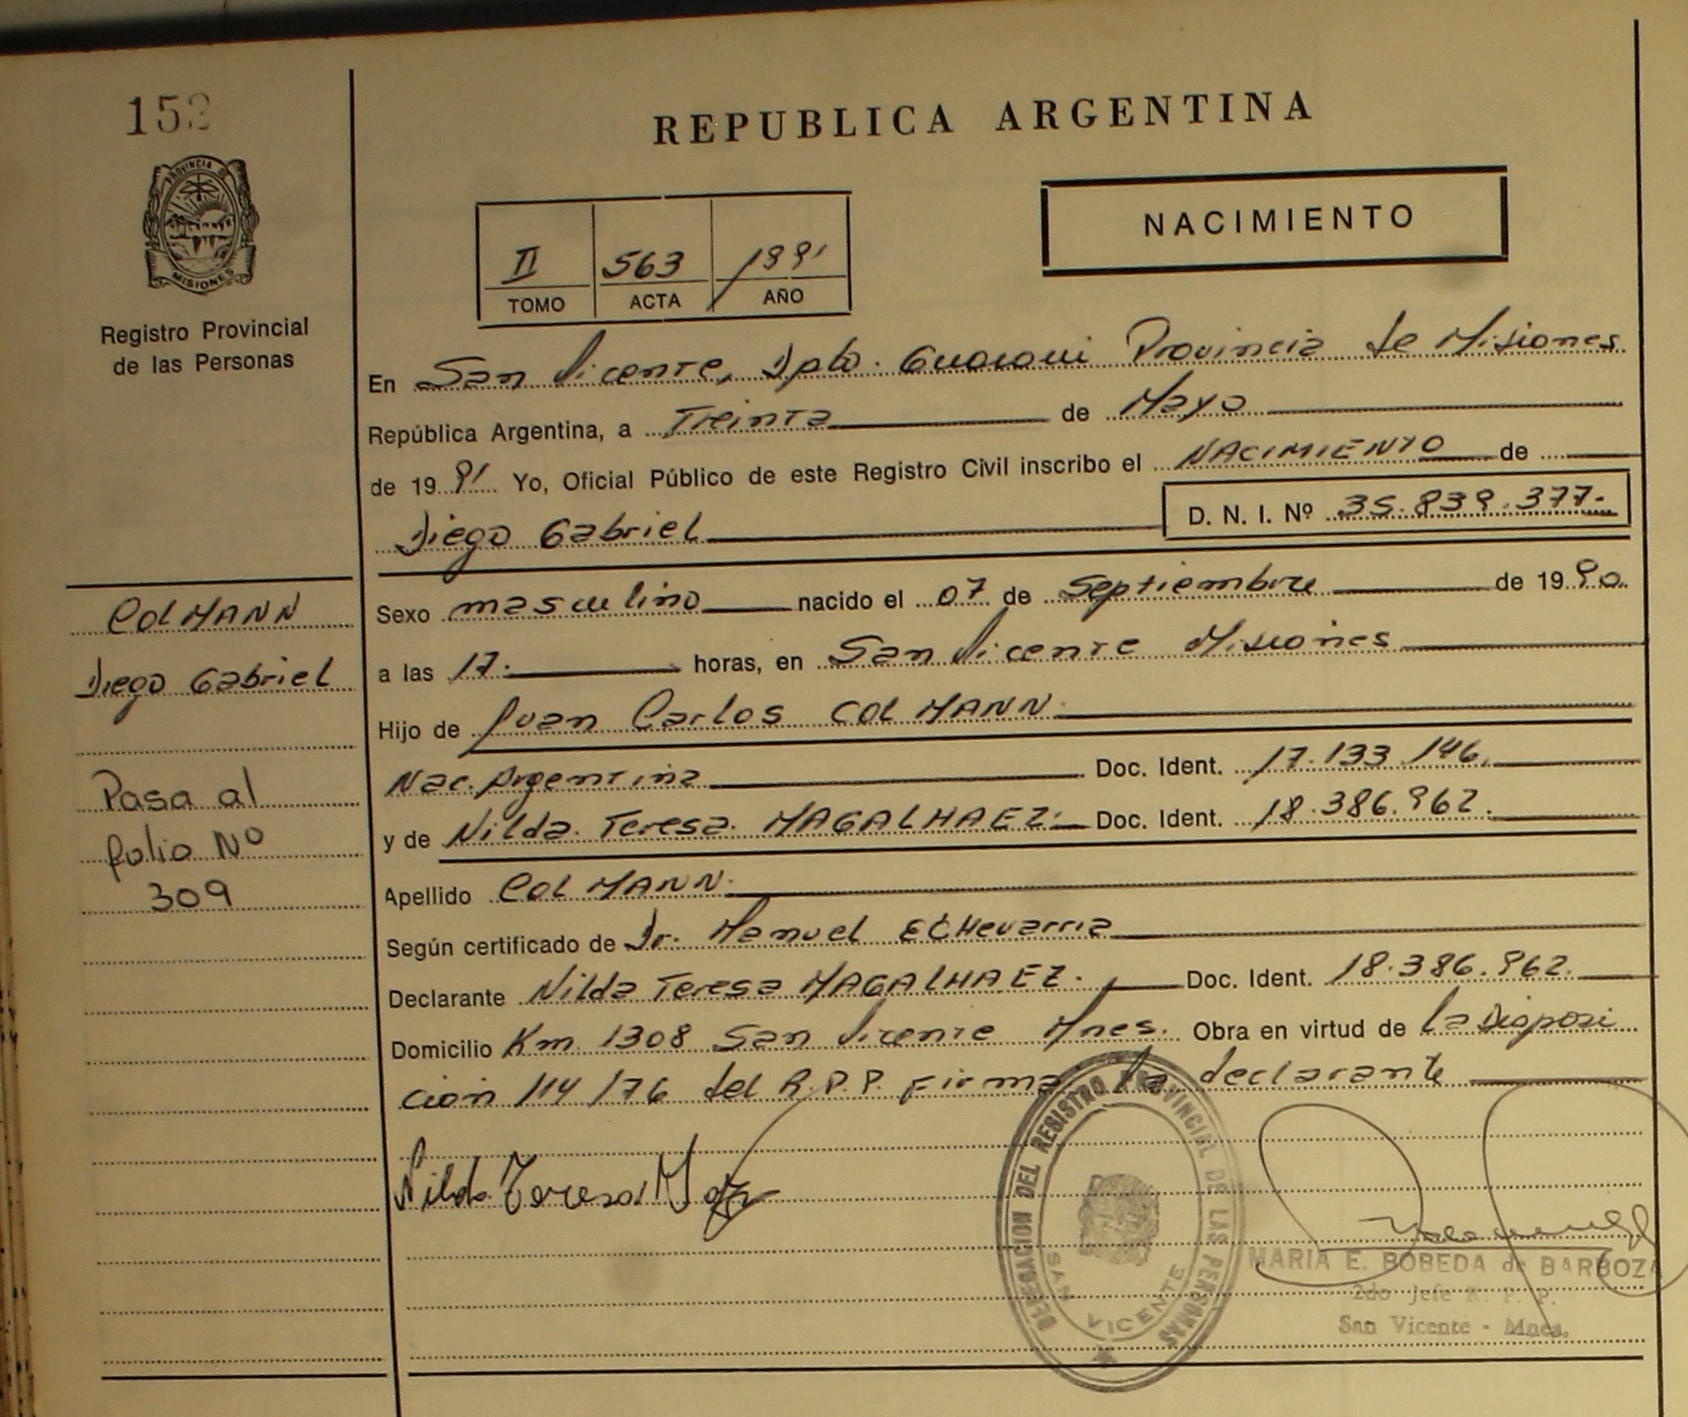 152
PROVINCIA DE
MISIONES
Registro Provincial
de las Personas
COLMANN
Diego Gabriel
Pasa al
folio Nº
309
REPUBLICA ARGENTINA
NACIMIENTO
II 563 1991
TOMO ACTA AÑO
En San Vicente, Dpto. Guarani Provincia de Misiones
República Argentina, a Treinta de Mayo
de 1991 Yo, Oficial Público de este Registro Civil inscribo el NACIMIENTO de
Diego Gabriel D. N. I. Nº 35.839.377.
Sexo masculino nacido el 07 de Septiembre de 1990.
a las 17. horas, en San Vicente Misiones
Hijo de Juan Carlos COLMANN
Nac. Argentina Doc. Ident. 17.133.146.
y de Nilda Teresa MAGALHAEZ. Doc. Ident. 18.386.962.
Apellido COLMANN.
Según certificado de Dr. Manuel ECHevarria
Declarante Nilda Teresa MAGALHAEZ. Doc. Ident. 18.386.962.
Domicilio Km 1308 San Vicente Mnes. Obra en virtud de la Disposi
cion 114/76 del R.P.P. firma la declarante
Nilda Teresa
DELEGACION DEL REGISTRO PROVINCIAL DE LAS PERSONAS
SAN VICENTE
MARIA E. BOBEDA de BARBOZA
2do Jefe R. P. P.
San Vicente - Mnes.